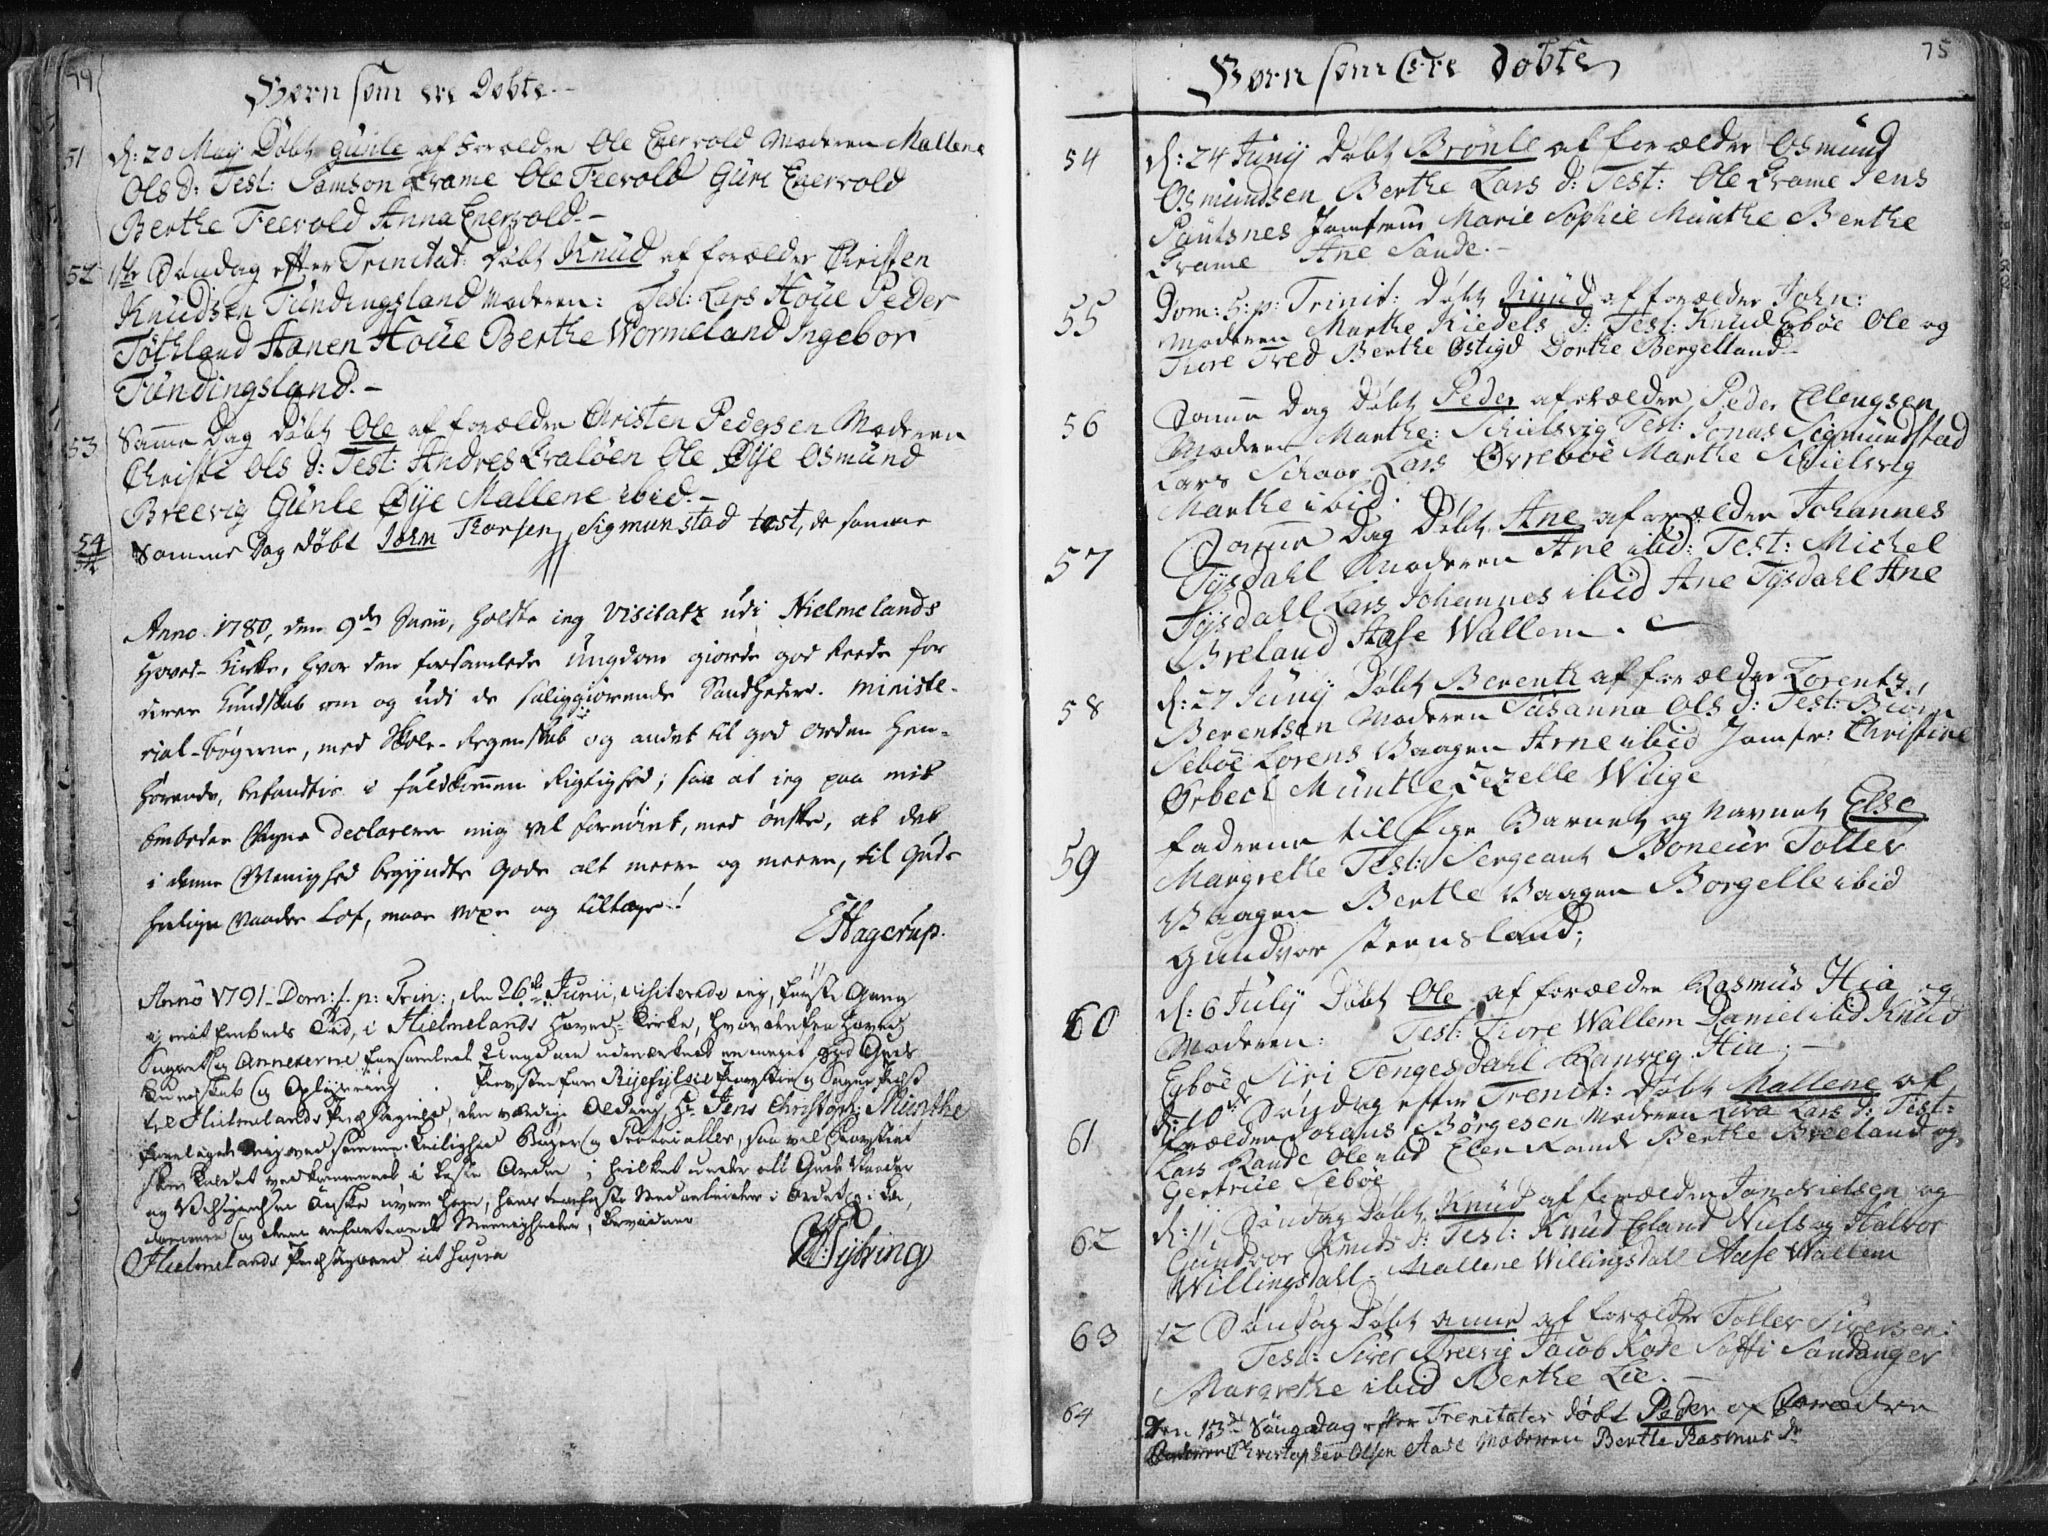 Børn som ere Døbte.
51 d: 20 May Døbt Gunle af Forældre Ole Enervold Moderen Mallene
Ols d: Test: Samson Frame Ole Feevold Guri Enervold
Berthe Feevold Anna Enervold.
52 1ste Søndag efter Trinitat: Døbt Knud af forælder Christen
Knudsen Tundingsland Moderen: Test: Lars Hoÿe Peder
Tøthland Hanen Hoÿe Berthe Wormeland Ingebor
Tundingsland.
53 Samme Dag Døbt Ole af forældre Christen Pedersen Moderen
Christi Ols d: Test: Andres Qualøen Ole Øÿe Osmund
Breevig Gunle Øÿe Mallene ibid.
54 Samme Dag døbt John Thorsen Sigmunstad test, de samme
Anno 1780, den 9de Junii, holdte jeg Visitatz udi Hielmelands
Hoved-Kirke, hvor den forsamlede Ungdom giorde god Reede for
deres Kundskab om og udi de saliggiørende Sandheder. Ministe-
rial-Bøgerne, med Skole-Regenskab og andet til god Orden hen-
hørende, befandtes i fuldkommen Rigtighed; saa at jeg paa mit
Embedes Vegne declarerer mig vel fornøiet, med ønske, at det
i denne Menighed begyndte Gode alt meere og meere, til Guds
hellige Naades Lof, maae voxe og tiltage!
E Hagerup.
Anno 1791 Dom: 1. p: Trin:, den 26de Junii, visiterede jeg, første Gang
i mit Embeds Tid, i Hielmelands Hoved-Kirke, hvor den fra Hoved
Sognet og Annexerne forsamlede Ungdom udmærkede en meget god Guds
Kundskab og Oplysning. Provsten for Ryefylke Provstie og Sogne Præst
til Hielmelands Præstegield, den værdige Olding, Hr. Jens Christoph: Munthe
forelagde mig ved samme Leilighed Bøger og Protocoller, saavel Provstiet
som Kaldet vedkommende, i beste Orden
Hielmelands Præstegaard ut supra
Børn som Ere Døbte 75
54 d: 24 Junÿ Døbt Brønle af forælder Osmund
Osmundsen Berthe Lars d: Test: Ole Frame Jens
Pautsnes Jomfrue Marie Sophie Münthe Berthe
Frame Ane Sande.
55 Dom: 5: p: Trinit: Døbt Knud af forælder John:
Moderen Marthe Kiedels d: Test: Knud Egbøe Ole og
Tiore Tred Berthe Østigd Dorthe Bergelland
56 Samme Dag Døbt Peder af forældre Peder Ellengsen
Moderen Marthe: Schielsvig Test: Jonas Sigmundstad
Lars Schaar Lars Øvrebøe Marthe Schielsvig
Marthe ibid.
57 Samme Dag Døbt Ane af forælder Johannes
Tÿsdahl Moderen Ane ibid: Test: Michel
Tÿsdall Lars Johannes ibid Ane Tÿsdahl Ane
Breland Aase Wallem.
58 d: 27 Junÿ Døbt Berenth af forælder Lorentz
Berentsen Moderen Susanna Ols d: Test: Biørn
Sebøe Lorens Vaagen Arne ibid Jomfr: Christine
Ørbech Münthe Zezelle Wiige
59 Faderen til Pige Barnet og Navnet Else
Margrethe Test: Sergeant Boneür Toller
Vaagen Berthe Vaagen Borgelle ibid
Gundvor steensland;
60 d: 6 Julÿ Døbt Ole af forælder Rasmus Hia og
Moderen: Test: Tiore Wallem Daniel ibid Knud
Egbøe Siri Tengesdahl Ranveg Hia.
61 d: 10de Søndag efter Trenit: Døbt Mallene af
forælder Johans Børgesen Moderen Liva Lars d: Test:
Lars Rande Ole ibid Elen Rande Berthe Breeland og
Gertrue Sebøe
62 d: 11 Søndag Døbt Knud af forælder Jon Nielsen og
Gundvor Knuds d: Test: Knud Egland Niels og Halvor
Willingsdahl Mallene Willingsdal Aase Wallem
63 12 Søndag Døbt Anne af forælder Toller Siversen:
Test: Siver Breevig Jacob Rode Saffi Sandanger
Margrethe ibid Berthe Lie.
64 Den 13de Søngedag efter Trenitates døbt Peder af Forældre
Christopher Olsen Aase Moderen Berthe Rasmus dr